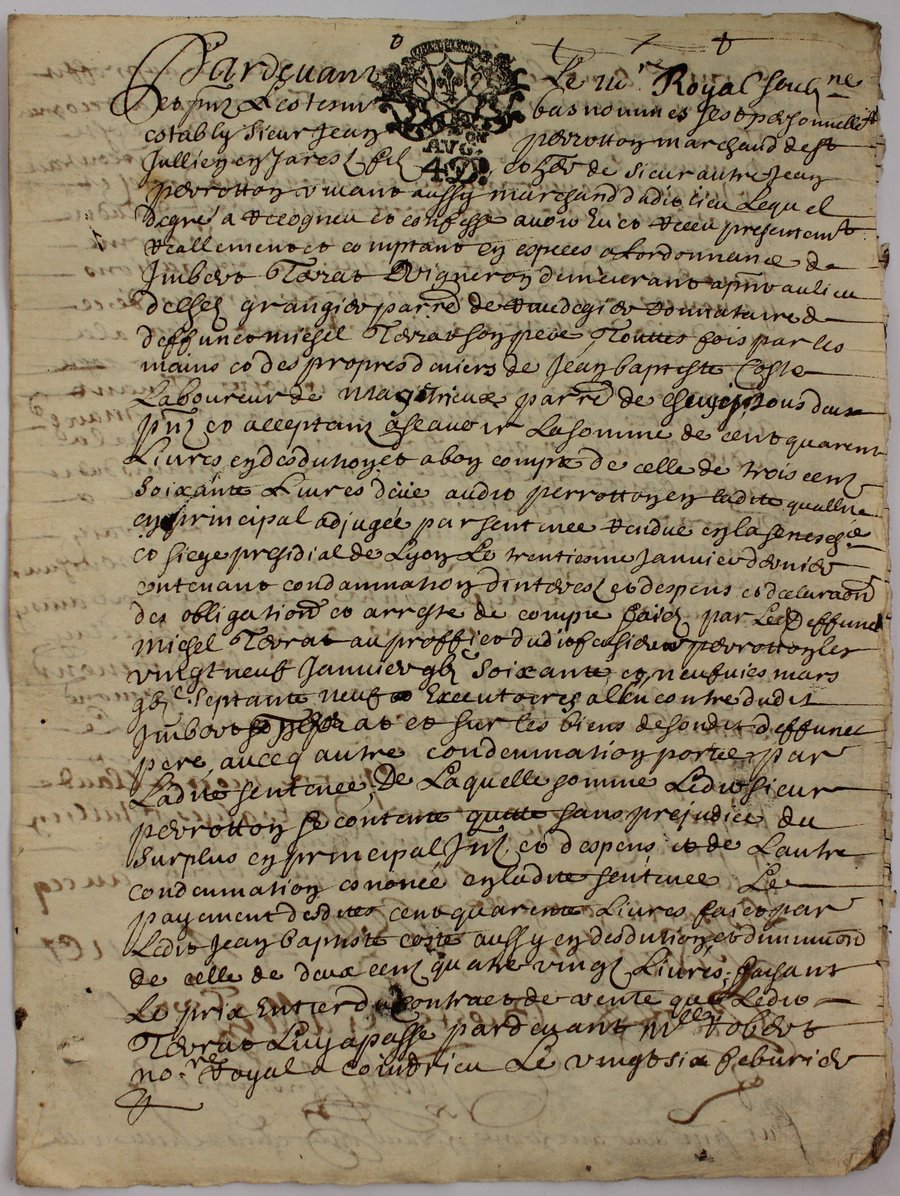 Pardevant Le no.re Royal soubz.ne
et pnz Les tesm bas nommes sest personnellet
estably sieur Jean perrotton marchand de st
Jullien en Jarest fil et her de sieur autre Jean
perrotton vivant aussy marchand dudit lieu Lequel
degré a recogneu et confesse avoir Eu et receu presentemt
reallement et comptant en especes a Lordonnance de
Imbert Terrat vigneron demeurant a au lieu
de grangier parre de donnataire de
deffunct michel Terrat son pere Touttes fois par les
mains et des propres deniers de Jean baptiste Coste
Laboureur de parre de
pnz et acceptans ascavoir La somme de cent quarent
Livres en desduction et a bon compte de celle de trois cens
soixante Livres deue audit perrotton en ladite quallite
en principal adjugée par sentence rendue en la senesch.ee
et siege presidial de Lyon Le trentiesme Janvier dernier
contenant condamnation dinterest et despens et declaraon
des obligation et arreste de compte faict par Led deffunct
michel Terrat au proffict dudit feu sieur perrotton les
vingt neuf Janvier gbjc soixante et neuf vies mars
gbjc septante neuf Executoires allencontre dudit
Imbert Terrat et sur les biens de sondit deffunct
pere, avecq autre condemnation portée par
Ladite sentence, De Laquelle somme Ledit sieur
perrotton se contente quitte sans prejudice du
surplus en principal Inz et despens et de Lautre
condemnation enoncé en ladite sentence Le
payement desdites cent quarente Livres faict par
Ledit Jean baptiste coste aussy en desduction et diminuon
de celle de deux cens quatre vingt Livres, faisant
Le prix Entier du contract de vente que Ledit
Terrat Luy a passe pardevant Me Robert
no.re Royal a coindrieu Le vingt six feburier